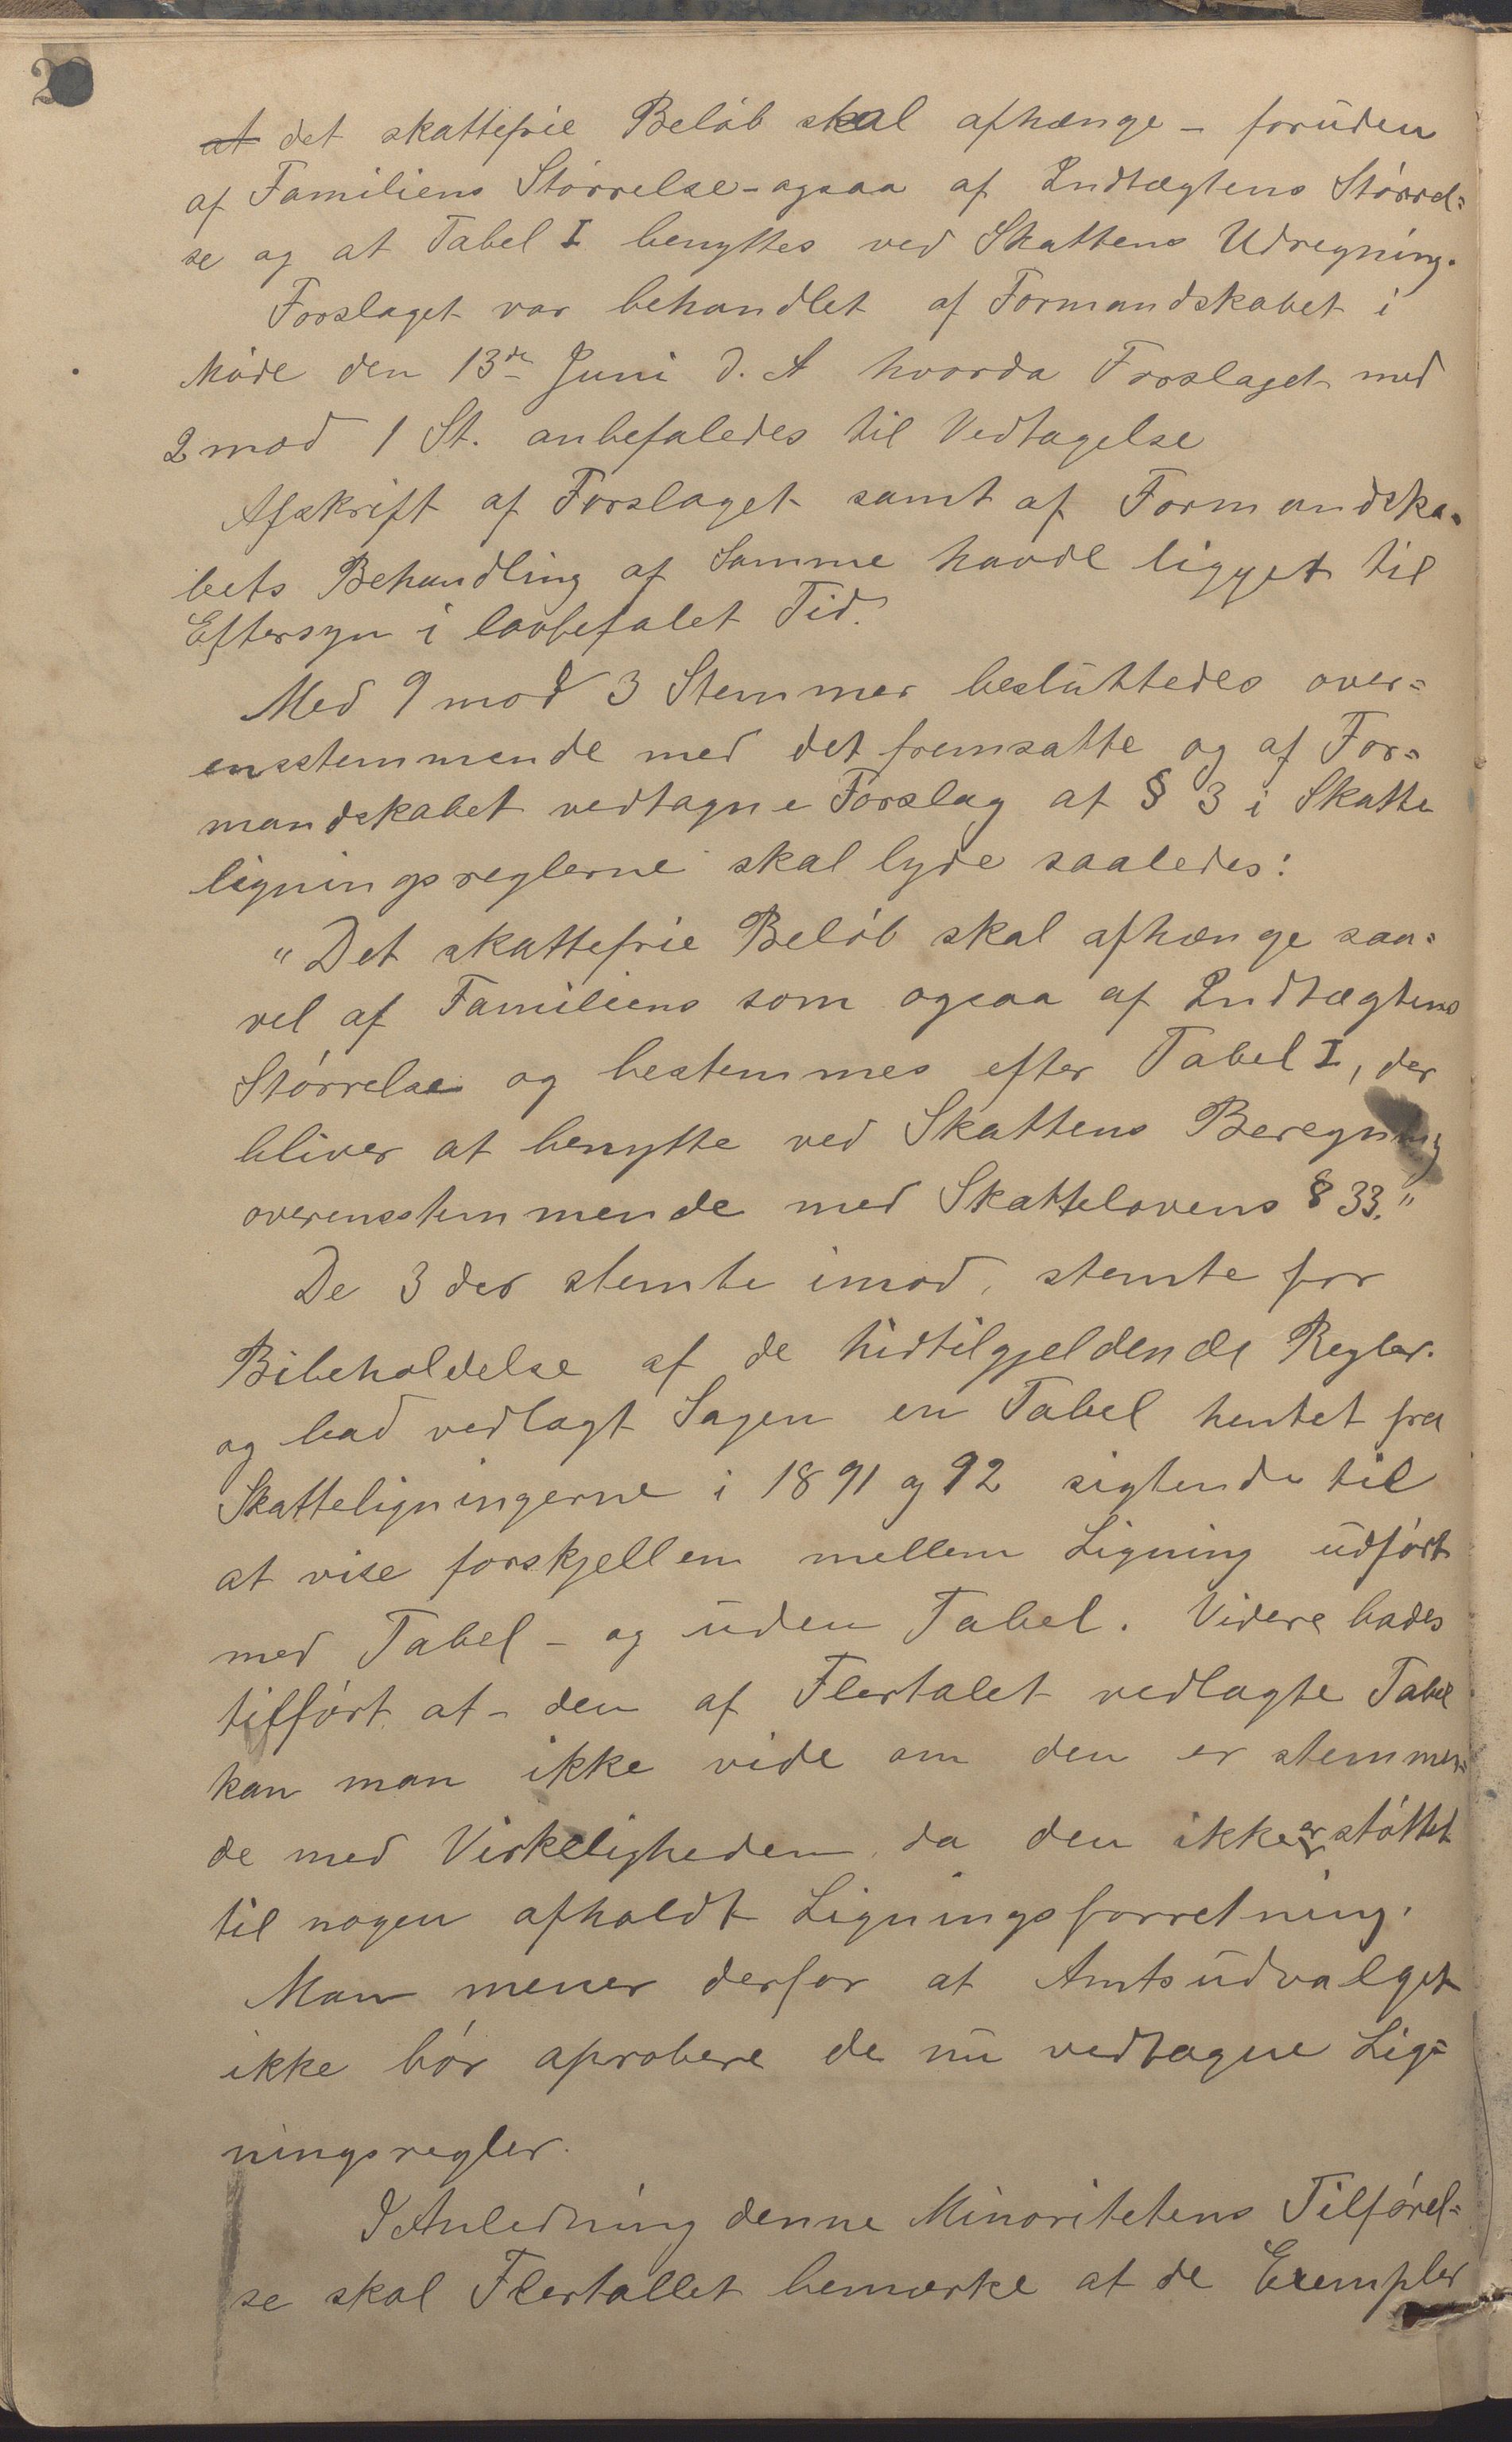 2
at det skattefrie Beløb skal afhænge - foruden
af Familiens Størrelse - ogsaa af Indtægtens Størrel=
se og at Tabel I benyttes ved Skattens Udregning.
Forslaget var behandlet af Formandskabet i
Møde den 13de Juni d. A hvorda Forslaget med
2 mod 1 St. anbefaledes til Vedtagelse
Afskrift af Forslaget samt af Formandska=
bets Behandling af Samme havde ligget til
Eftersyn i lovbefalet Tid.
Med 9 mod 3 Stemmer besluttedes over=
ensstemmende med det fremsatte og af For=
mandskabet vedtagne Forslag at § 3 i Skatte
ligningsreglerne skal lyde saaledes:
"Det skattefrie Beløb skal afhænge saa=
vel af Familiens som ogsaa af Indtægtens
Størrelse og bestemmes efter Tabel I, der
bliver at benytte ved Skattens Beregning
overensstemmende med Skattelovens § 33."
De 3 der stemte imod, stemte for
Bibeholdelse af de hidtilgjeldende Regler.
og bad vedlagt Sagen en Tabel hentet fra
Skatteligningerne i 1891 og 92 sigtende til
at vise forskjellen mellem Ligning udført
med Tabel - og uden Tabel. Videre bades
tilført at - den af Flertalet vedlagte Tabel
kan man ikke vide om den er stemmen=
de med Virkeligheden, da den ikke er støttet
til nogen afholdt Ligningsforretning.
Man mener derfor at Amtsudvalget
ikke bør aprobere de nu vedtagne Lig=
ningsregler.
I Anledning denne Minoritetens Tilførel=
se skal Flertallet bemærke at de Exempler